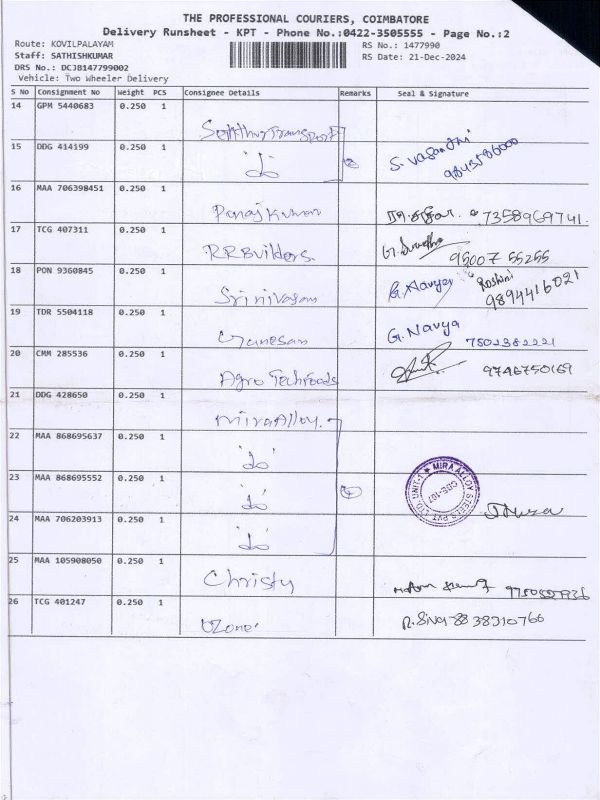 THE PROFESSIONAL COURIERS, COIMBATORE
Delivery Runsheet - KPT - Phone No.:0422-3505555 - Page No.:2
Route: KOVILPALAYAM
Staff: SATHISHKUMAR
DRS No.: DCJB147799002
Vehicle: Two Wheeler Delivery
RS No.: 1477990
RS Date: 21-Dec-2024
S No Consignment No Weight PCS Consignee Details Remarks Seal & Signature
14 GPM 5440683 0.250 1
15 DDG 414199 0.250 1 "do" S. Vasanthi
9843586000
16 MAA 706398451 0.250 1 Panajkumar 7358969741
17 TCG 407311 0.250 1 RRBuilders. 95007 55255
18 PON 9360845 0.250 1 Srinivasan Roshini
9894416021
19 TDR 5504118 0.250 1 Ganesan G. Navya
7502382221
20 CMM 285536 0.250 1 Agro Techfoods 9746750169
21 DDG 428650 0.250 1 MiraAlloy.
22 MAA 868695637 0.250 1 "do"
23 MAA 868695552 0.250 1 "do" MIRA ALLOY STEELS PVT. LTD. UNIT-1
24 MAA 706203913 0.250 1 "do"
25 MAA 105908050 0.250 1 Christy
26 TCG 401247 0.250 1 Ozone R. Siva 8838310766